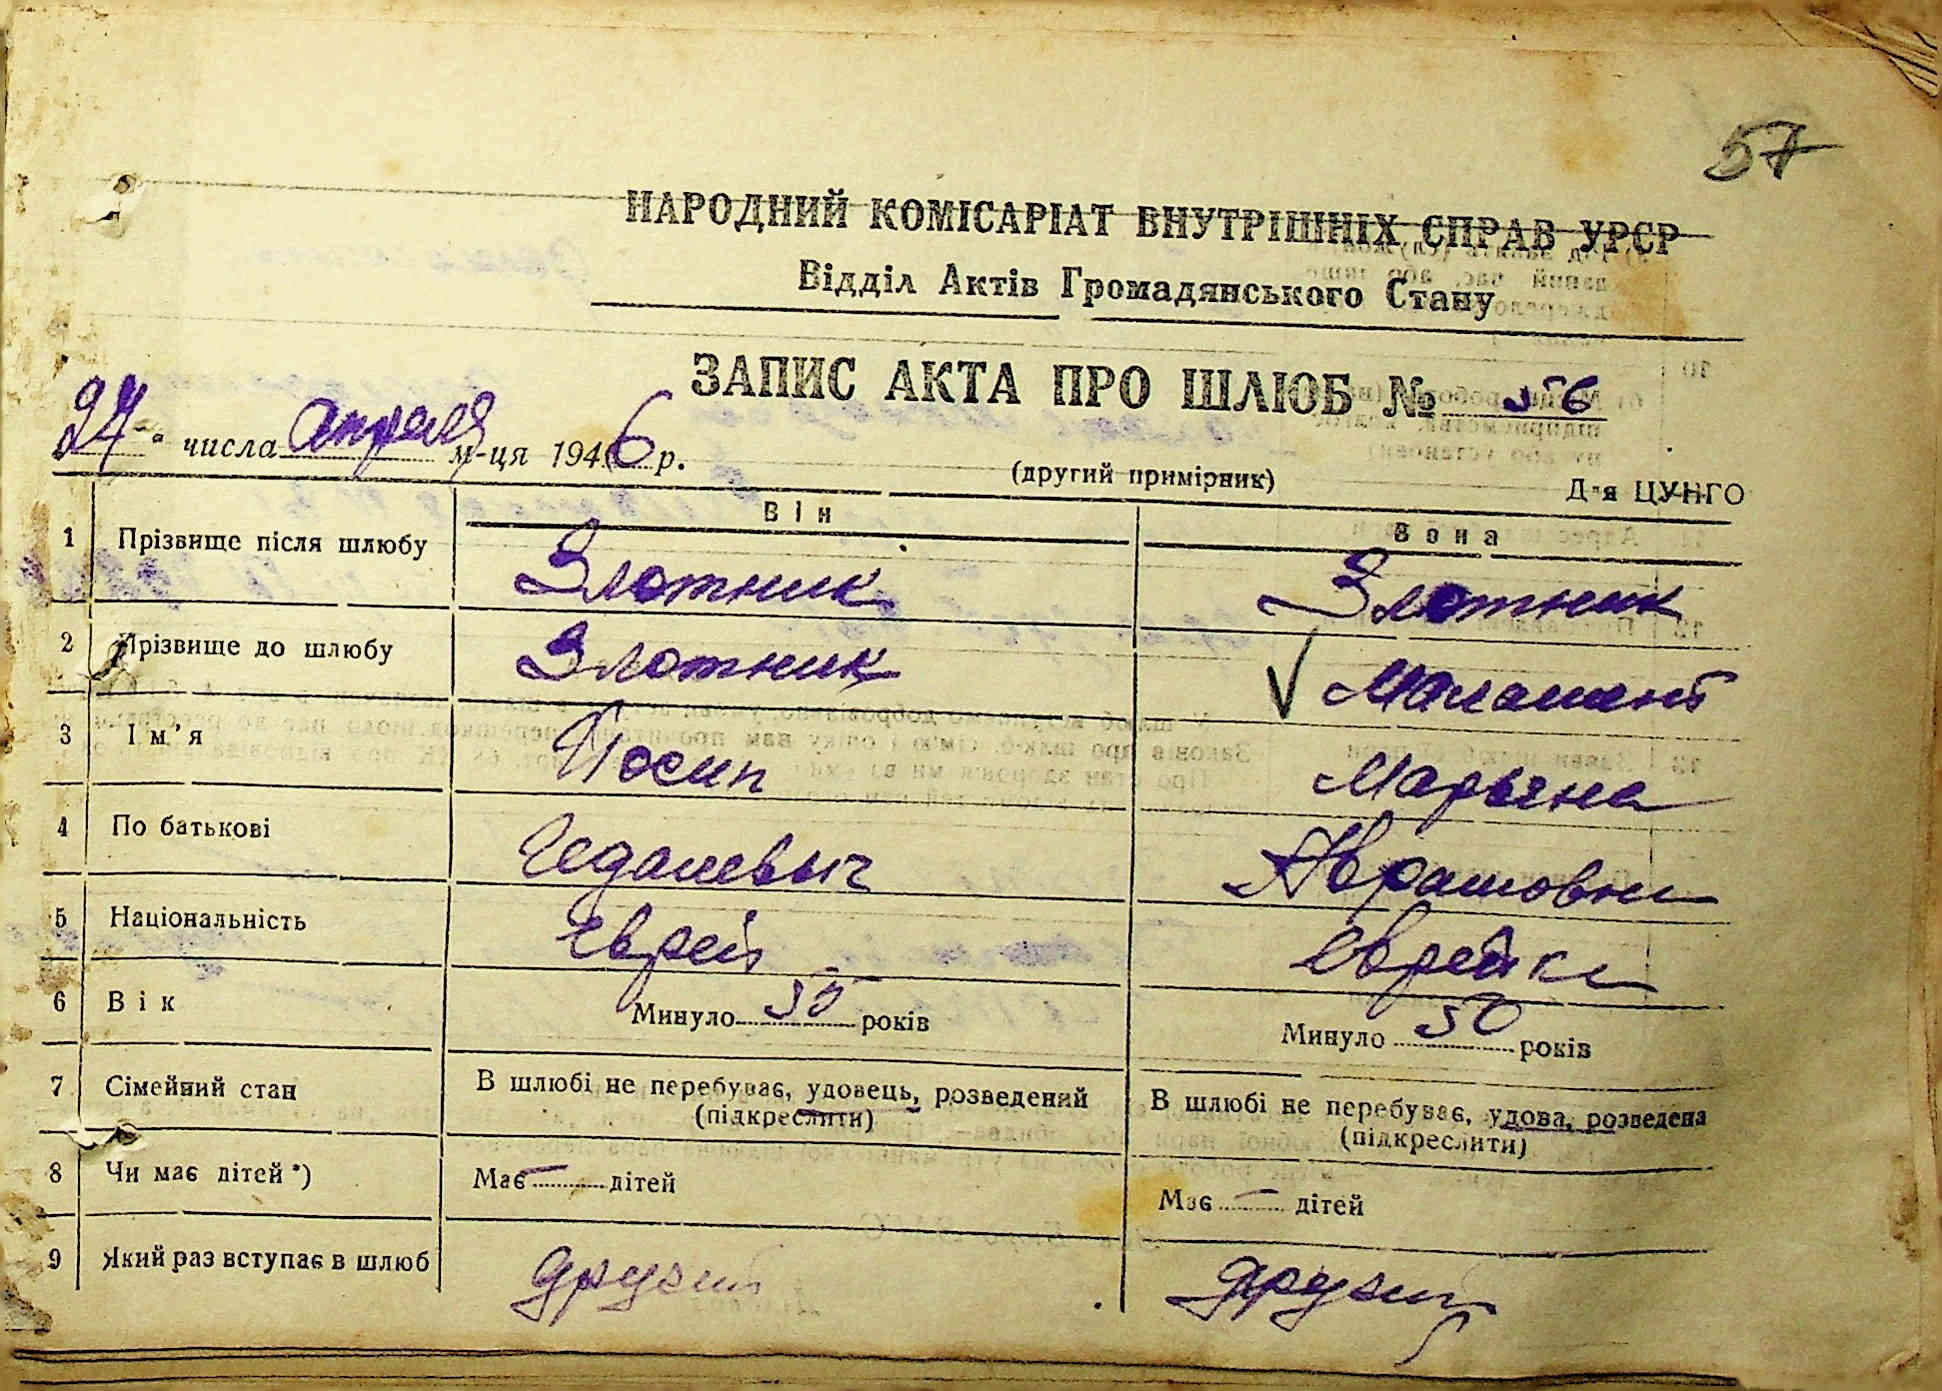 57
НАРОДНИЙ КОМІСАРІАТ ВНУТРІШНІХ СПРАВ УРСР
Відділ Актів Громадянського Стану
ЗАПИС АКТА ПРО ШЛЮБ № 56
24 числа апреля м-ця 1946 р.
(другий примірник) Для ЦУНГО
Він Вона
1 Прізвище після шлюбу Злотник Злотник
2 Прізвище до шлюбу Злотник √
3 Ім'я Йосип Марьяна
4 По батькові Гедалевыч Аврамовна
5 Національність Еврей еврейка
6 Вік Минуло років Минуло 50 років
7 Сімейний стан В шлюбі не перебуває, удовець, розведений В шлюбі не перебуває, удова, розведена
(підкреслити) (підкреслити)
8 Чи має дітей *) Має — дітей Має — дітей
9 Який раз вступає в шлюб другий другий